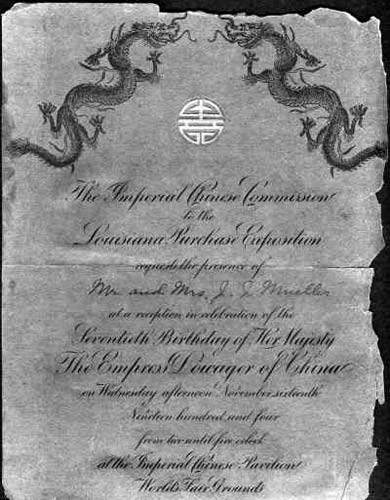 The Imperial Chinese Commission
to the
Louisiana Purchase Exposition
requests the presence of
Mr. and Mrs. J. Mueller
at a reception in celebration of the
Seventieth Birthday of Her Majesty
The Empress Dowager of China
on Wednesday afternoon November sixteenth
Nineteen hundred and four
from two until five o'clock
at the Imperial Chinese Pavilion
World's Fair Grounds